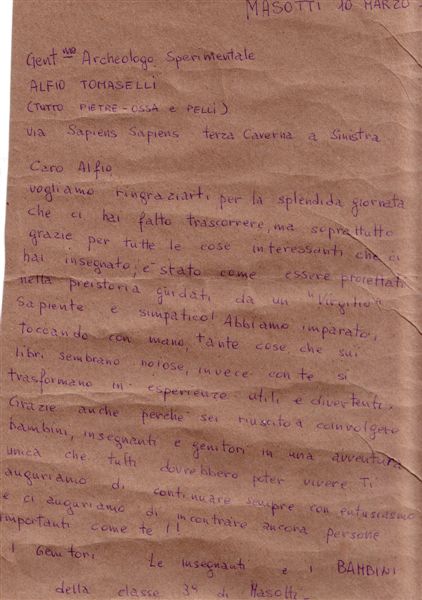 MASOTTI 10 MARZO
Gent.mo Archeologo Sperimentale
ALFIO TOMASELLI
(TUTTO PIETRE-OSSA e PELLI)
via Sapiens Sapiens terza Caverna a Sinistra
Caro Alfio
vogliamo ringraziarti per la splendida giornata
che ci hai fatto trascorrere, ma soprattutto
grazie per tutte le cose interessanti che ci
hai insegnato; e' stato come essere proiettati
nella preistoria guidati da un "Virgilio"
Sapiente e simpatico! Abbiamo imparato,
toccando con mano, tante cose che sui
libri sembrano noiose, invece con te si
trasformano in esperienze utili e divertenti.
Grazie anche perchè sei riuscito a coinvolgere
bambini, insegnanti e genitori in una avventura
unica che tutti dovrebbero poter vivere Ti
auguriamo di continuare sempre con entusiasmo
e ci auguriamo di incontrare ancora persone
importanti come te!!
I Genitori Le insegnanti e i BAMBINI
della classe 3ª di Masotti